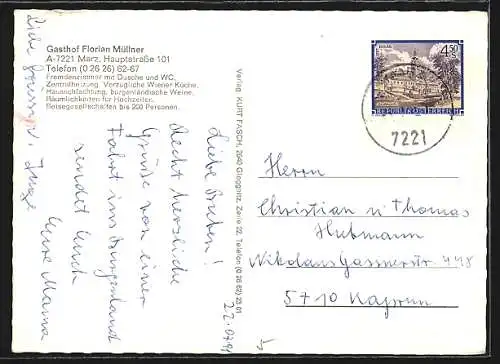 Gasthof Florian Müllner
A-7221 Marz, Hauptstraße 101
Telefon (0 26 26) 62-67
Fremdenzimmer mit Dusche und WC,
Zentralheizung. Vorzügliche Wiener Küche,
Hausschlachtung, burgenländische Weine.
Räumlichkeiten für Hochzeiten,
Reisegesellschaften bis 200 Personen.
Liebe Buben!
Recht herzliche
Grüße von einer
Fahrt ins Burgenland
sendet Euch
Eure Mama
22.07.91
Liebe
Verlag: KURT FASCH, 2640 Gloggnitz, Zeile 22, Telefon (0 26 62) 23 91
4.50
S
REPUBLIK ÖSTERREICH
7221
Herrn
Christian u Thomas
Hubmann
Nikolaus Gassnerstr 448
5710 Kaprun
5